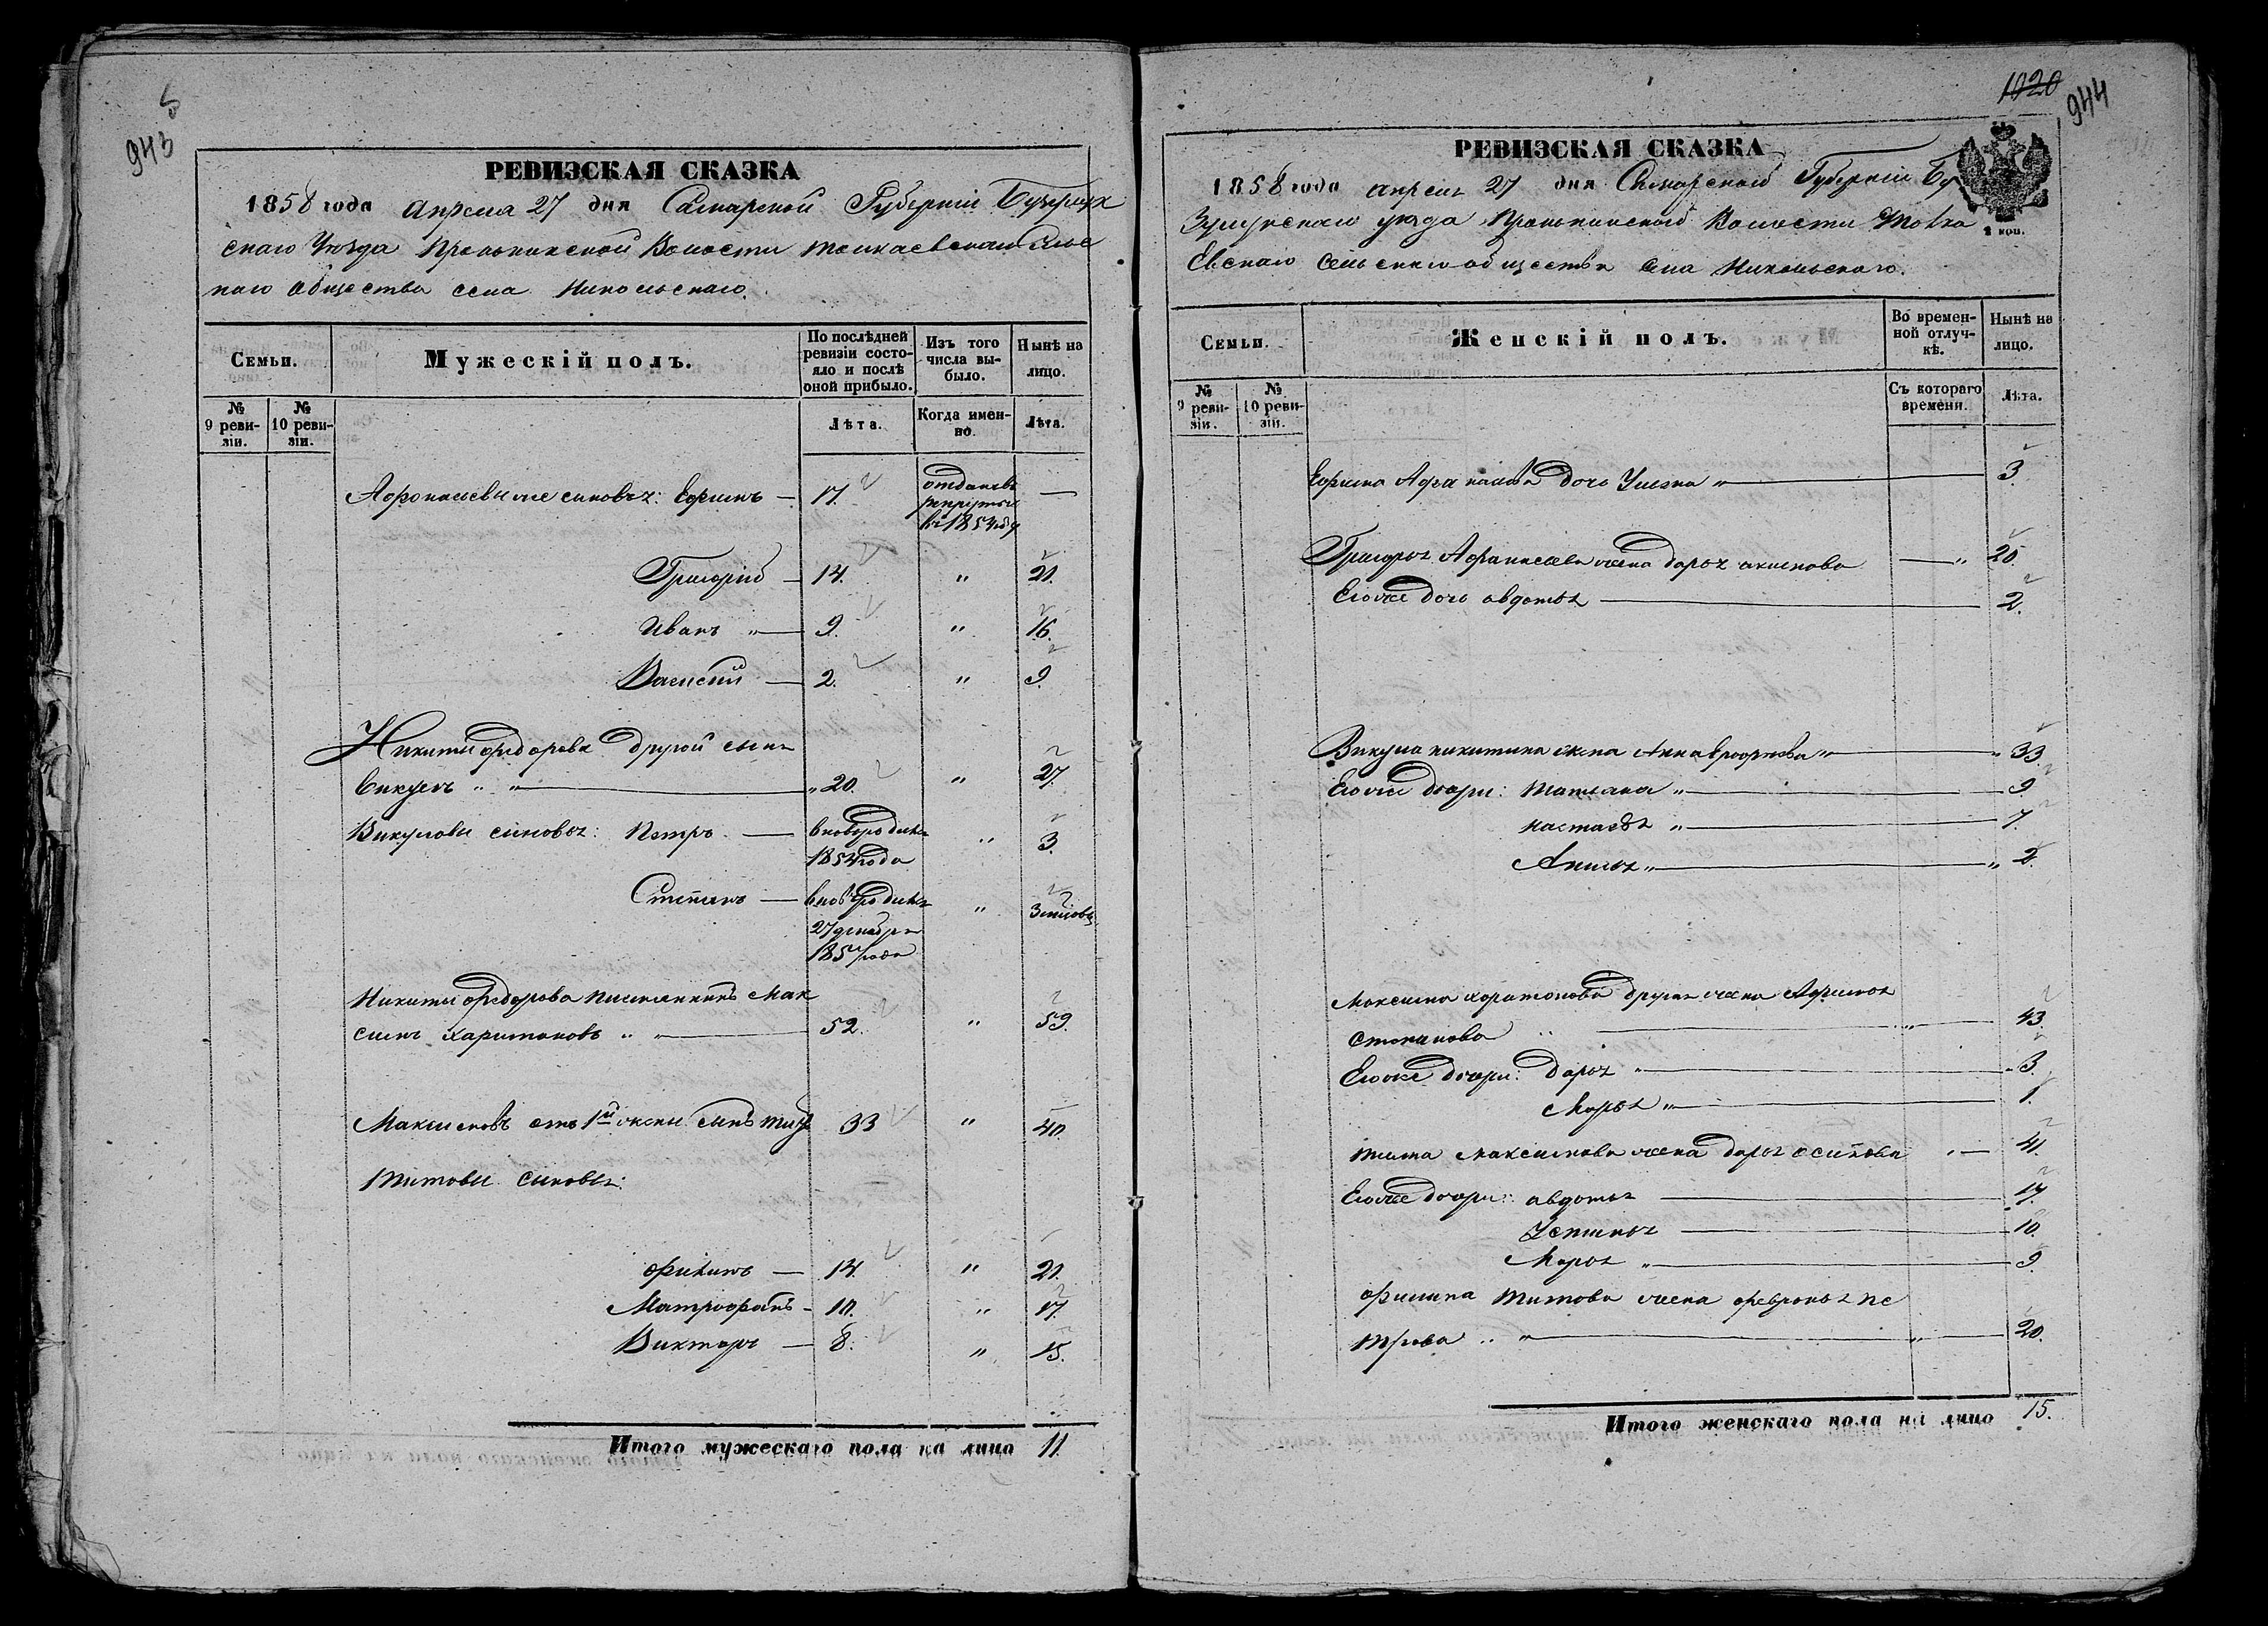 943
РЕВИЗСКАЯ СКАЗКА
1858 года апреля 27 дня Самарской Губерніи Бузулук
скаго Уѣзда Пронькинской Волости Толкаевскаго Сельс
каго общества села Никольскаго.
Семьи.
Мужескій полъ.
По послѣдней ревизіи состояло и послѣ оной прибыло.
Изъ того числа выбыло.
Нынѣ на лицо.
№ 9 ревизіи.
№ 10 ревизіи.
Лѣта.
Когда именно.
Лѣта.
Афонасьевы же сыновья: Ефимъ — 17. отданъ въ рекруты въ 1854 году —
Григорій — 14. " 21.
Иванъ " — 9. " 16.
Василій — 2. " 9.
Никиты Федорова другой сынъ
Викулъ " " — " 20. " 27.
Викуловы сыновья: Петръ — вновь рожденъ 1854 года " 3.
Степанъ — вновь рожденъ 27 декабря 1857 года "
Никиты Федорова племянникъ Мак
симъ Харитоновъ " " — 52. " 59.
Максимовъ отъ 1й жены сынъ Титъ 33 " 40.
Титовы сыновья:
Филипъ — 14. " 21.
Матрофанъ - 10. " 17.
Викторъ — 8. " 15.
Итого мужескаго пола на лицо 11.
1020
944
РЕВИЗСКАЯ СКАЗКА
1858 года апреля 27 дня Самарской Губерніи Бу
зулукскаго уезда Пронькинской Волости Толка
евскаго сельскаго общества села Никольскаго.
2 коп.
Семьи.
Женскій полъ.
Во временной отлучкѣ.
Нынѣ на лицо.
№ 9 ревизіи.
№ 10 ревизіи.
Съ котораго времени.
Лѣта.
Ефима Афанасьева дочь Ульяна " — 3.
Григорья Афанасьева жена Дарья Акимова — " 20.
Его же дочь Авдотья — 2.
Викула Никитина жена Анна " — " 33.
Его же дочери: Татьяна " — 9.
Настасья " — 7.
" — " 2.
Максима Харитонова другая жена Афимья
Степанова — " — 43.
Его же дочери: Дарья " — " 3.
Марья " — 1.
Тита Максимова жена Дарья Осипова " — 41.
Его же дочери: Авдотья — 17.
Устинья — 10.
Марья " — 9.
Филипа Титова жена Февронья Пе
трова " " — " — 20.
Итого женскаго пола на лицо 15.